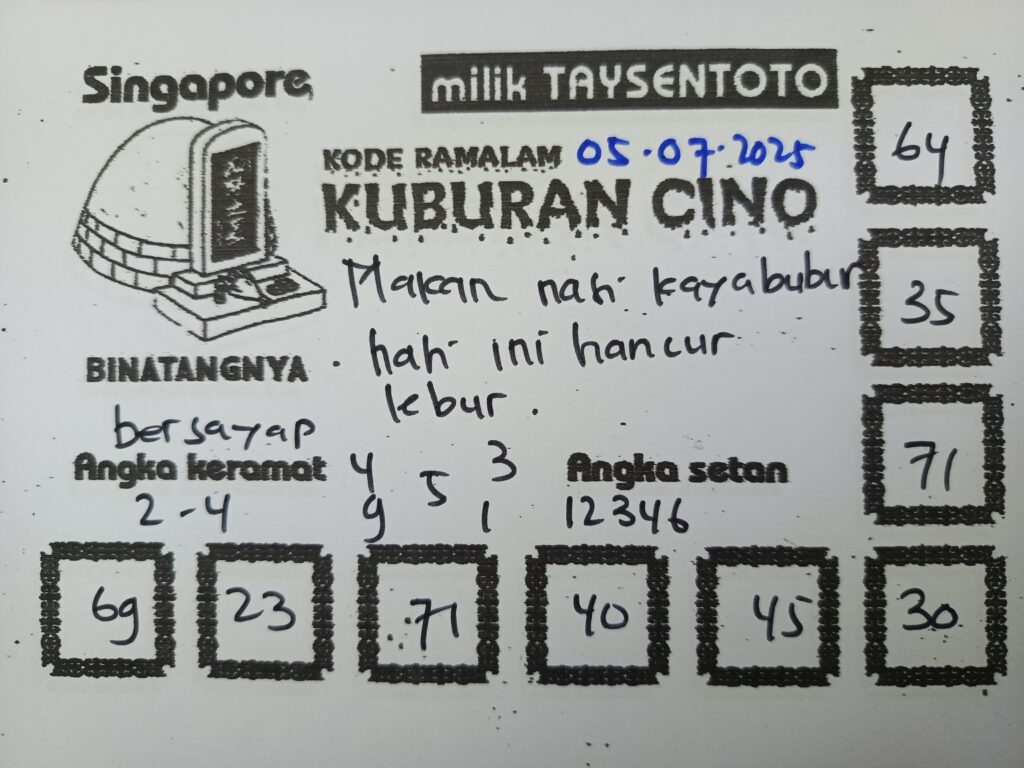 Singapore
milik TAYSENTOTO
KODE RAMALAM 05.07.2025
KUBURAN CINO
Makan nasi kayabubur
hasi ini hancur
lebur.
BINATANGNYA
bersayap
Angka keramat
2-4
4 3
5
9 1
Angka setan
12346
64
35
71
69 23 71 40 45 30